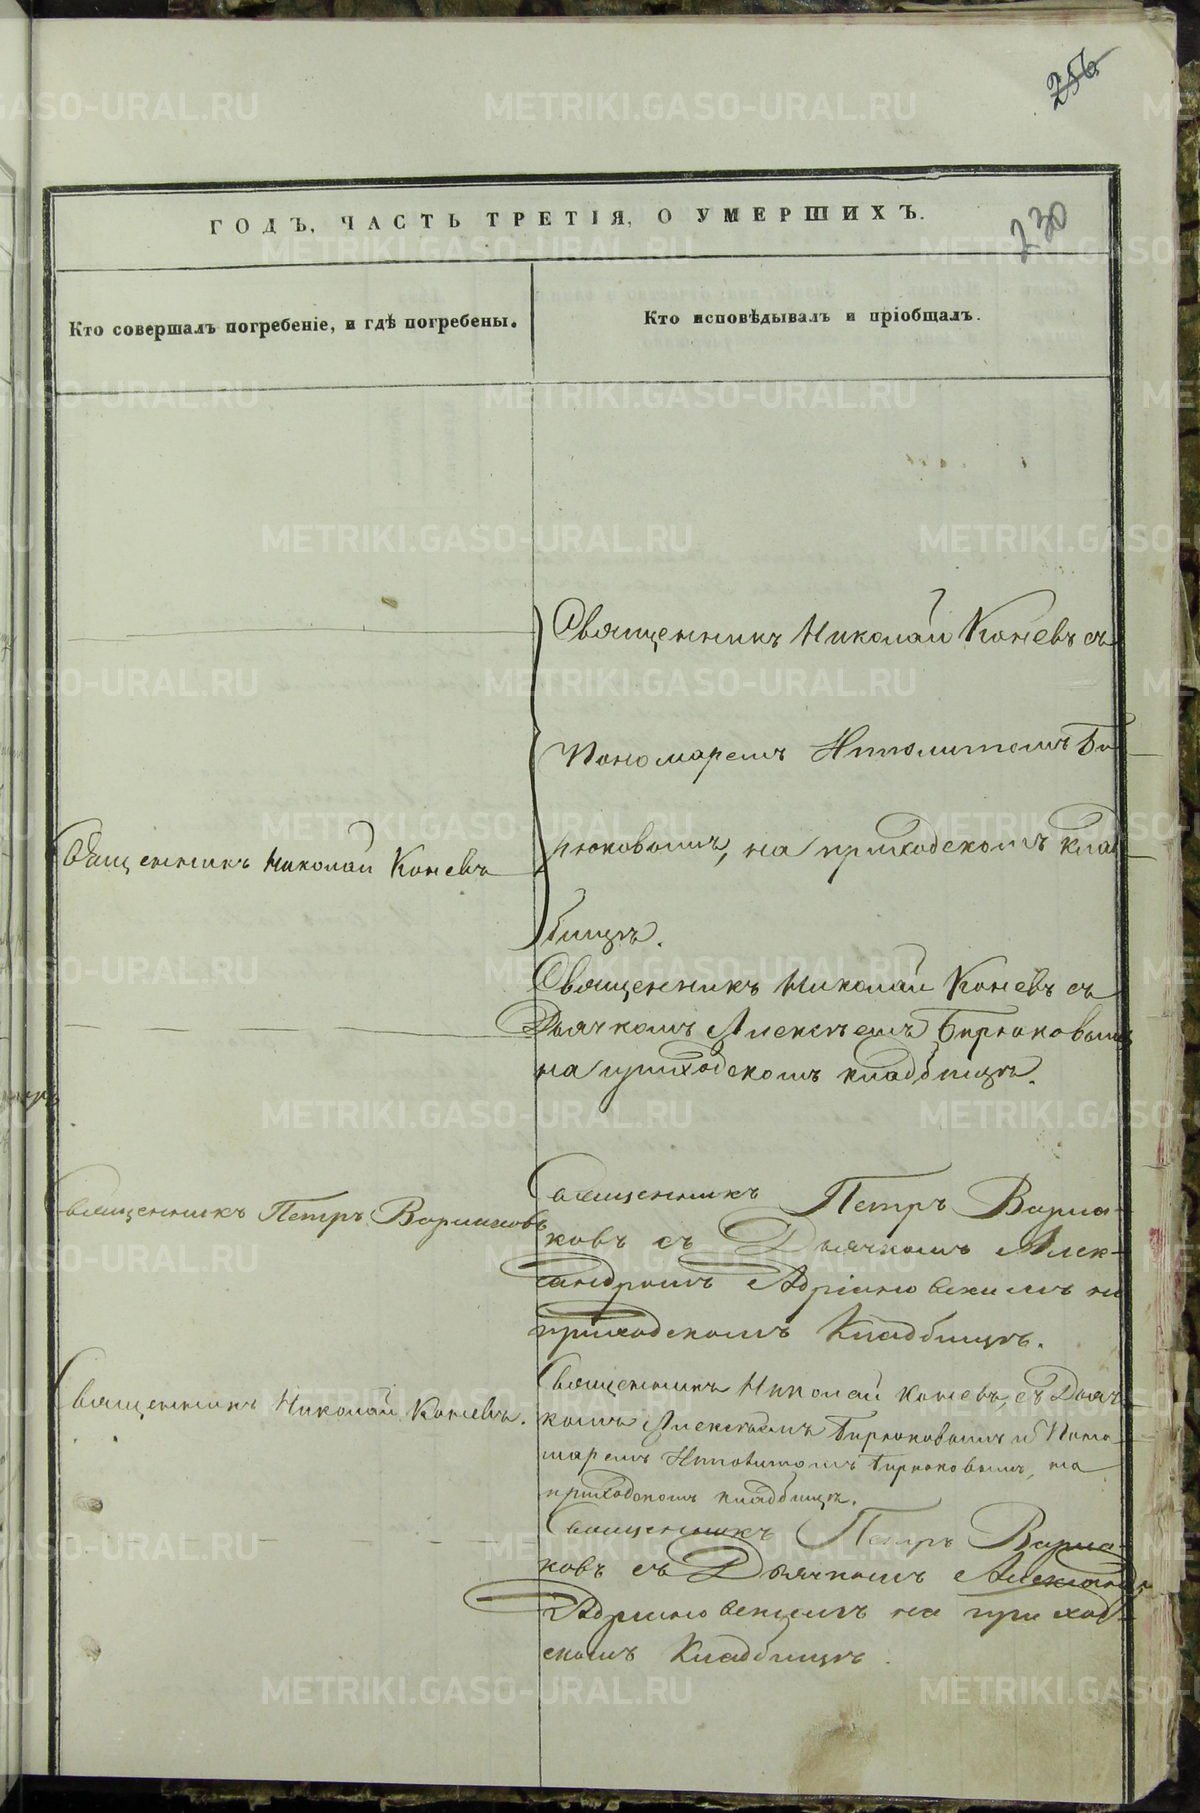 256
ГОДЪ, ЧАСТЬ ТРЕТІЯ, О УМЕРШИХЪ.
230
Кто совершалъ погребеніе, и гдѣ погребены.
Кто исповѣдывалъ и пріобщалъ.
Священникъ Николай Коневъ съ
Пономаремъ Иполитомъ Би-
рюковымъ, на приходскомъ клад-
бищѣ.
Священникъ Николай Коневъ
Священникъ Николай Коневъ съ
Дьячкомъ Алексѣемъ Бирюковымъ
на приходскомъ кладбищѣ.
Священникъ Петръ Варлаковъ
Священникъ Петръ Варла-
ковъ съ Дьячкомъ Алек-
сандромъ Адріановскимъ на
приходскомъ Кладбищѣ.
Священникъ Николай Коневъ.
Священникъ Николай Коневъ, съ Дьяч-
комъ Алексѣемъ Бирюковымъ и Поно-
маремъ Иполитомъ Бирюковымъ, на
приходскомъ кладбищѣ.
Священникъ Петръ Варла-
ковъ съ Дьячкомъ
Адріановскимъ на приход-
скомъ Кладбищѣ.
METRIKI.GASO-URAL.RU